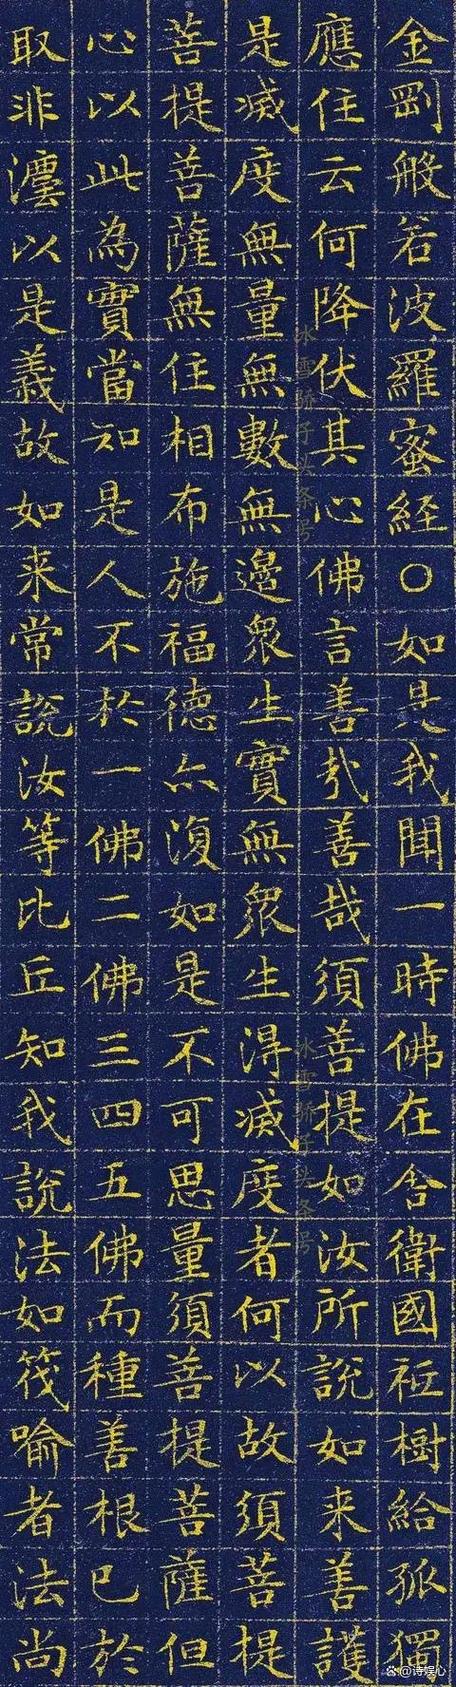 金剛般若波羅蜜経〇如是我聞一時佛在舍衛國祇樹給孤獨
應住云何降伏其心佛言善哉善哉須菩提如汝所說如来善護
是滅度無量無數無邊眾生實無眾生得滅度者何以故須菩提
菩提菩薩無住相布施福德亦復如是不可思量須菩提菩薩但
心以此為實當知是人不於一佛二佛三四五佛而種善根已於
取非灋以是義故如来常說汝等比丘知我說法如筏喻者法尚
冰雪骄子头条号
冰雪骄子头条号
@诗娱心